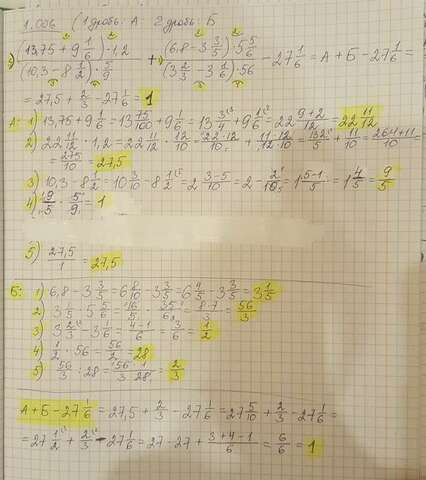 1.006 (1 дробь: А 2 дробь: Б
а) ((13,75 + 9 1/6) · 1,2) / ((10,3 - 8 1/2) · 5/9) + ((6,8 - 3 3/5) · 5 5/6) / ((3 2/3 - 3 1/6) · 56) - 27 1/6 = А + Б - 27 1/6 =
= 27,5 + 2/3 - 27 1/6 = 1
А: 1) 13,75 + 9 1/6 = 13 75/100 + 9 1/6 = 13 3/4 + 9 1/6 = 22 (9+2)/12 = 22 11/12
2) 22 11/12 · 1,2 = 22 11/12 · 12/10 = (22·12)/10 + (11·12)/(12·10) = 132/5 + 11/10 = (264+11)/10 =
= 275/10 = 27,5
3) 10,3 - 8 1/2 = 10 3/10 - 8 1/2 = 2 (3-5)/10 = 2 - 2/10 = 1 (5-1)/5 = 1 4/5 = 9/5
4) 9/5 · 5/9 = 1
5) 27,5/1 = 27,5
Б: 1) 6,8 - 3 3/5 = 6 8/10 - 3 3/5 = 6 4/5 - 3 3/5 = 3 1/5
2) 3 1/5 · 5 5/6 = 16/5 · 35/6 = (8·7)/3 = 56/3
3) 3 2/3 - 3 1/6 = (4-1)/6 = 3/6 = 1/2
4) 1/2 · 56 = 56/2 = 28
5) 56/3 : 28 = 56/3 · 1/28 = 2/3
А + Б - 27 1/6 = 27,5 + 2/3 - 27 1/6 = 27 5/10 + 2/3 - 27 1/6 =
= 27 1/2 + 2/3 - 27 1/6 = 27 - 27 + (3+4-1)/6 = 6/6 = 1